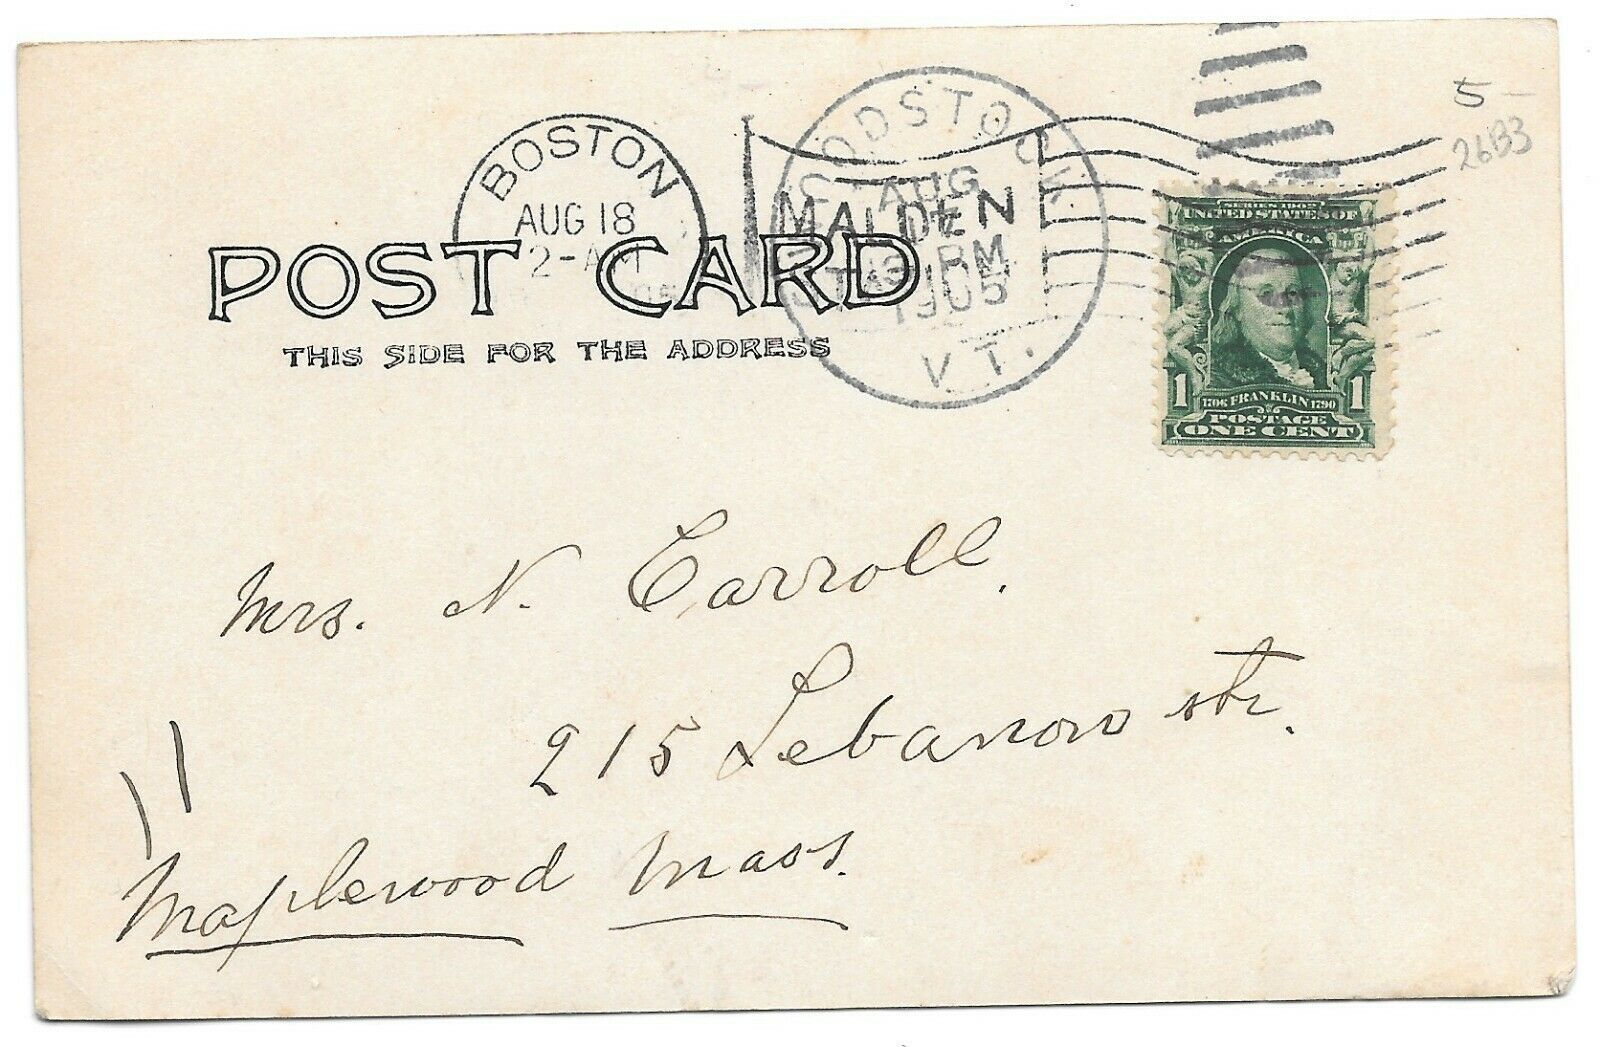 5-
26B3
BOSTON
AUG 18
2-AM
WOODSTOCK
AUG
17
PM
1905
VT.
MALDEN
STA.
SERIES 1902
UNITED STATES OF
AMERICA
1 1
1706 FRANKLIN 1790
POSTAGE
ONE CENT
POST CARD
THIS SIDE FOR THE ADDRESS
Mrs. N. Carroll.
215 Lebanon str.
Maplewood Mass.